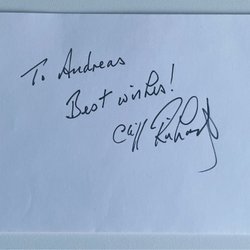 To Andreas
Best wishes!
Cliff Richard